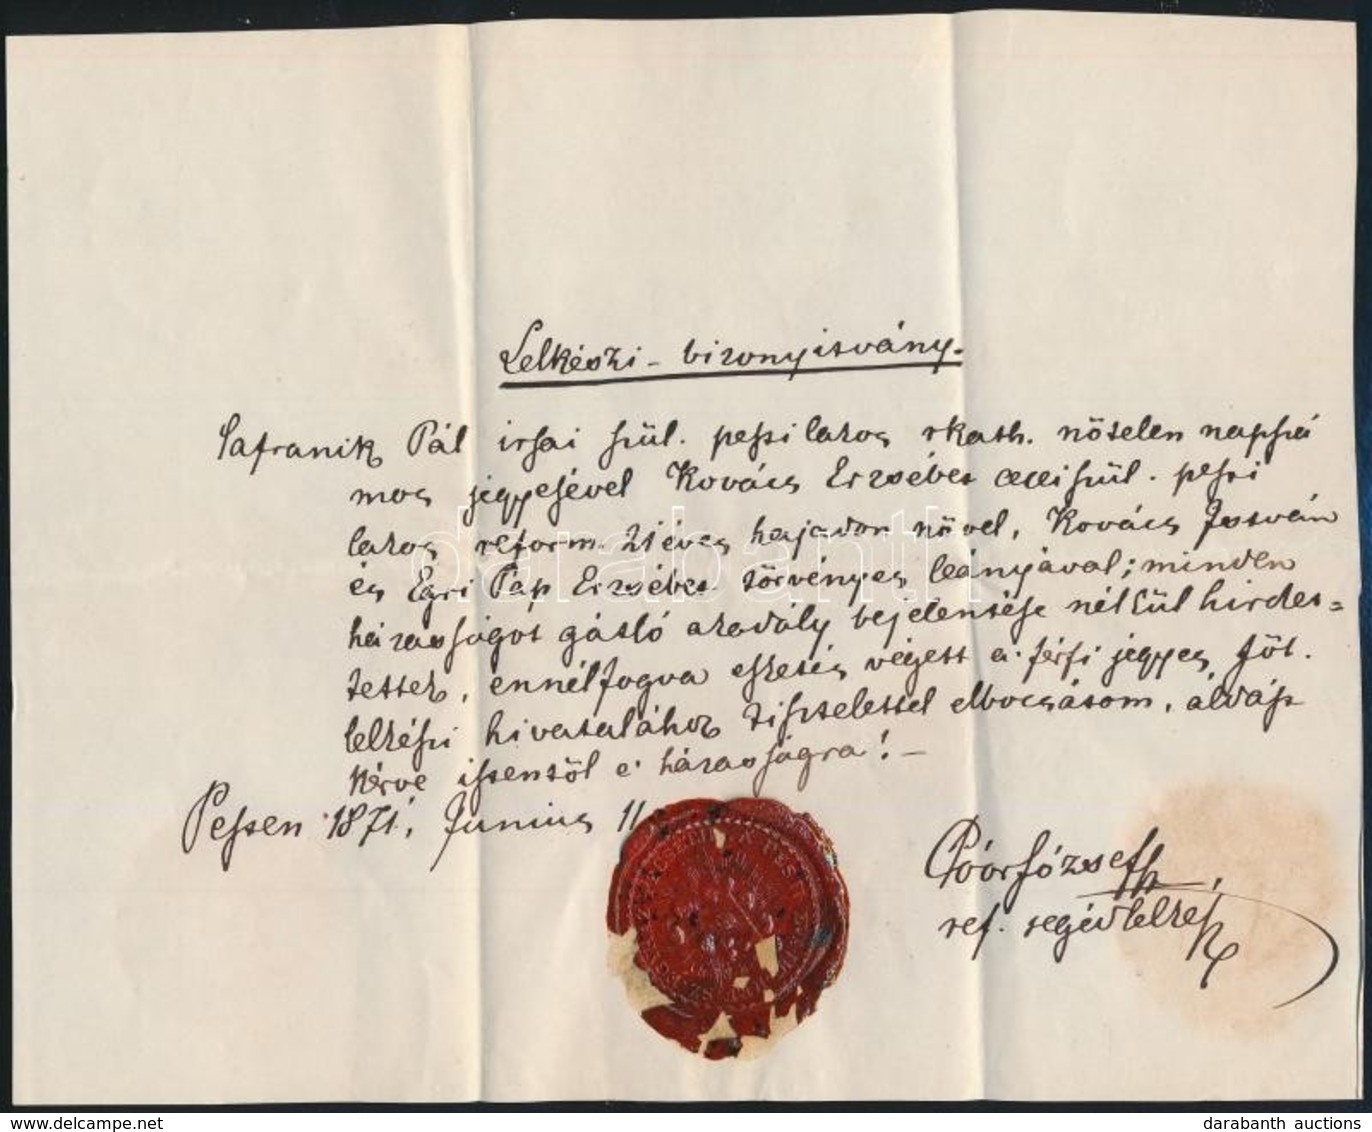 Lelkészi - bizonyitvány.
Safranik Pál irsai szül. pesti lakos rkath. nőtelen napszá
mos jegyesével Kovács Erzsébet szül. pesti
lakos reform. 21 éves hajadon nővel, Kovács István
és Egri Pap Erzsébet törvényes leányával; minden
házasságot gátló akadály bejelentése nélkül hirdet=
tettek, ennélfogva esketés végett a férfi jegyes főt.
lelkészi hivatalához tisztelettel elbocsátom, áldást
kérve istentől e házasságra! –
Pesten 1871. Junius 11
Póór József
ref. segédlelkész
darabanth
darabanth auctions
www.delcampe.net